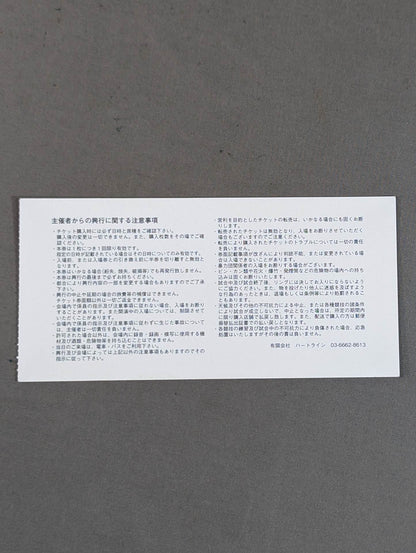 主催者からの興行に関する注意事項
・チケット購入時には必ず日時と席種をご確認下さい。
購入後の変更は一切できません。また、購入枚数をその場でご確
認ください。
・本券は１枚につき１回限り有効です。
指定の日時が記載されている場合はその日時についてのみ有効です。
入場前、または入場券との引き換え前に半券を切り離すと無効とな
ります。
・本券はいかなる場合（紛失、焼失、破損等）でも再発行致しません。
・本券は興行の最後まで必ずお持ちください。
・都合により興行内容の一部を変更する場合もありますのでご了承
下さい。
・興行の中止や延期の場合の旅費等の補償はできません。
・チケット券面額以外は一切ご返金できません。
・会場内で係員の指示及び注意事項に従わない場合、入場をお断り
することがあります。また開演中の入場については、制限させて
いただくことがあります。
・会場内で係員の指示及び注意事項に従わずに生じた事故について
は、主催者は一切責任を負いません。
・許可された場合以外は、会場内に録音・録画・模写に使用する機
材及び酒類・危険物等を持ち込むことはできません。
・当日のご来場は、電車・バスをご利用下さい。
・興行及び会場によっては上記以外の注意事項もありますのでその
指示に従って下さい。
・営利を目的としたチケットの転売は、いかなる場合にも固くお断
りします。
・転売されたチケットは無効となり、入場をお断りさせていただく
場合もございますのでご注意ください。
・転売により購入されたチケットのトラブルについては一切の責任
を負いません。
・券面記載事項が改ざんにより判読不能、または変更されている場合
は入場できないことがあります。
・暴力団関係者の入場をお断りする場合がございます。
・ビン・カン類や花火・爆竹・発煙筒などの危険物の場内への持ち
込みは固くお断りします。
・試合中及び試合終了後、リングには決してお入りにならないよう
にご協力ください。また、物を投げたり他人に迷惑をかけるよう
な行為のあったときは、退場もしくは条例等により処罰されるこ
とがあります。
・天候及びその他の不可抗力による中止、または各種競技の諸条件
により試合が成立しないで、中止となった場合は、所定の期間内
に限り購入店舗で払戻し致します。また、配送で購入の方は郵便
振替払出証書での払い戻しとなります。
・各競技の練習及び試合中の不可抗力により負傷された場合、応急
処置はいたしますがその後の責は負いません。
有限会社　ハートライン　03-6662-8613